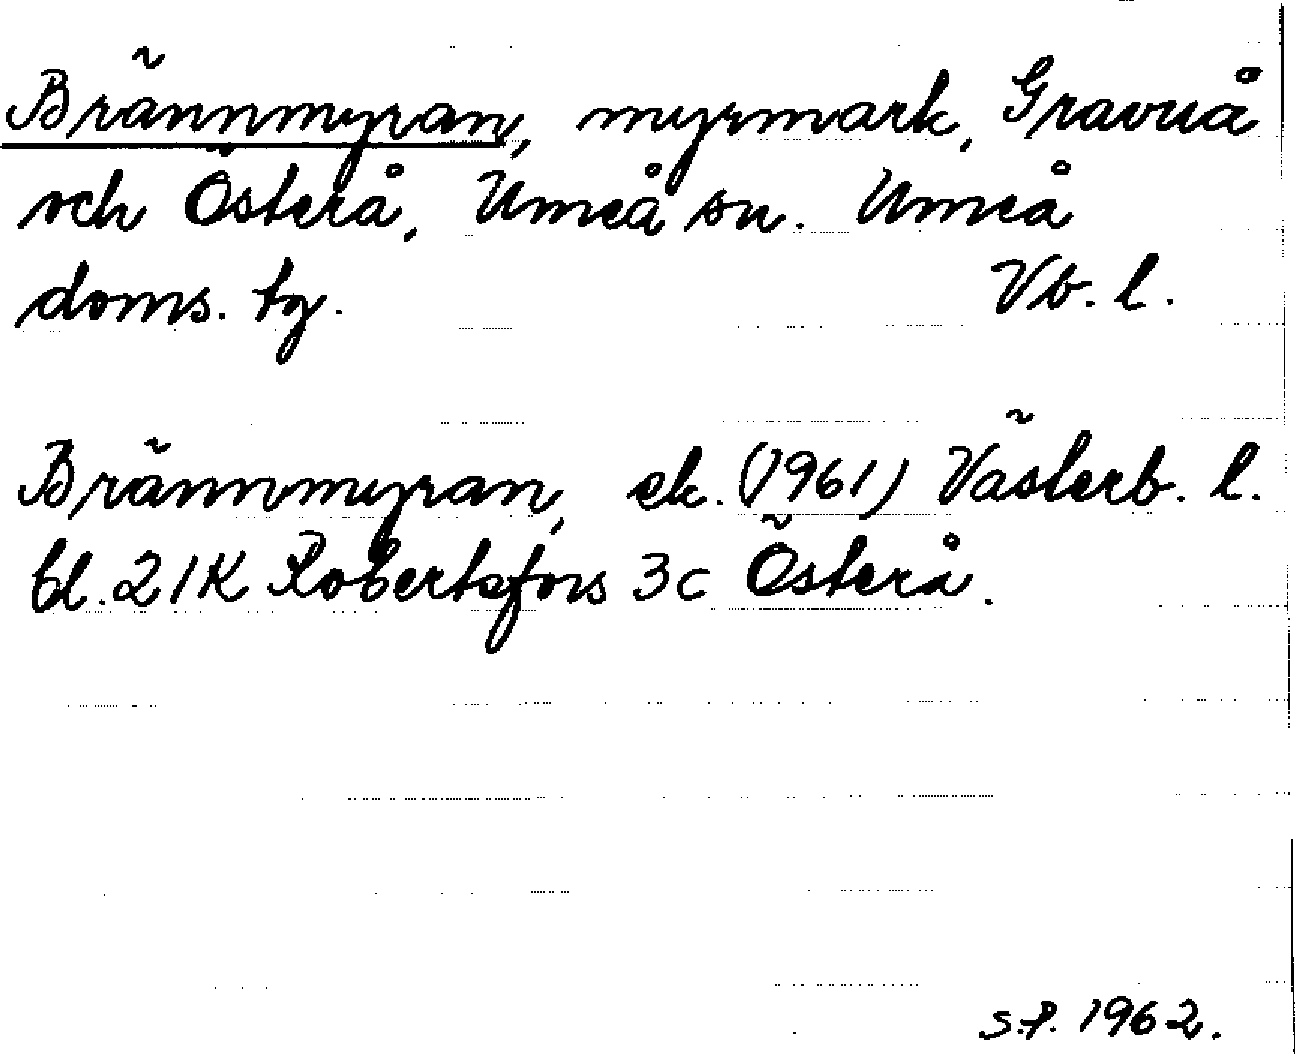 Brännmyran, myrmark, Gravuå
och Österå, Umeå sn. Umeå
doms. tg. Vb. l.
Brännmyran, ek. (1961) Västerb. l.
bl. 21K Robertsfors 3c Österå.
S.P. 1962.